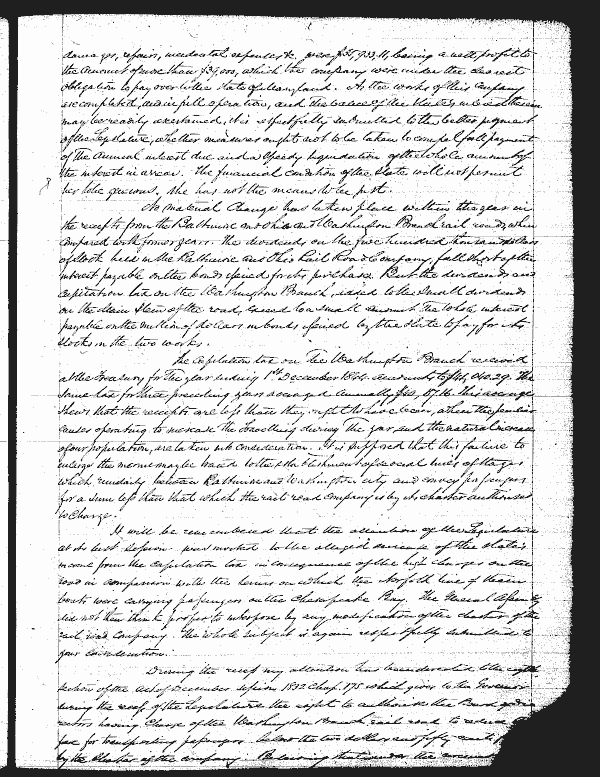 damages, repairs, incidental expenses &c. were $51,933.11, leaving a nett profit to
the amount of more than $39,000, which the company were under the clearest
obligation to pay over to the State of Maryland. As the works of this company
are completed, and in full operation, and the balance of the
may be readily ascertained, it is respectfully submitted to the better judgment
of the Legislature, whether measures ought not to be taken to compel full payment
of the annual interest due and a speedy liquidation of the whole amount of
the interest in arrear. The financial condition of the State will not permit
her to be generous, she has not the means to be just.
No material change has taken place within the year in
the receipts from the Baltimore and Ohio and Washington Branch rail roads, when
compared with former years. The dividends on the five hundred thousand dollars
of stock held in the Baltimore and Ohio Rail Road Company, fall short of the
interest payable on the bonds issued for its purchase. But the dividends and
capitation tax on the Washington Branch, added to the small dividends
on the Main Stem of the road, exceed to a small amount the whole interest
payable on the million of dollars in bonds issued by the State to pay for its
stocks in the two works.
The Capitation tax on the Washington Branch received
at the Treasury for the year ending 1st December 1844 amounts to
same tax for three preceding years averaged annually This average
shews that the receipts are less than they ought to have been, when the peculiar
causes operating to increase the travelling during the year and the natural increase
of our population, are taken into consideration. It is supposed that this failure to
enlarge the income may be traced to the establishment of several lines of stages
which run daily between Baltimore and Washington city and convey passengers
for a sum less than that which the rail road company is by its charter authorised
to charge.
It will be remembered that the attention of the Legislature
at its last session was invited to the alleged decrease of the State's
income from the capitation tax in consequence of the high charges on the
road in comparison with the terms on which the Norfolk line of steam
boats were carrying passengers on the Chesapeake Bay. The General Assembly
did not then think proper to interpose by any modification of the charter of the
rail road company. The whole subject is again respectfully submitted to
your consideration.
During the recess my attention has been directed to the eighth
section of the act of December session 1832 Chap. 175 which gives to the Governor
during the recess of the Legislature the right to authorise the Board of
rectors having charge of the Washington Branch rail road to reduce
fare for transporting passengers below the two dollars and fifty cents
by the Charter of the company. Believing that